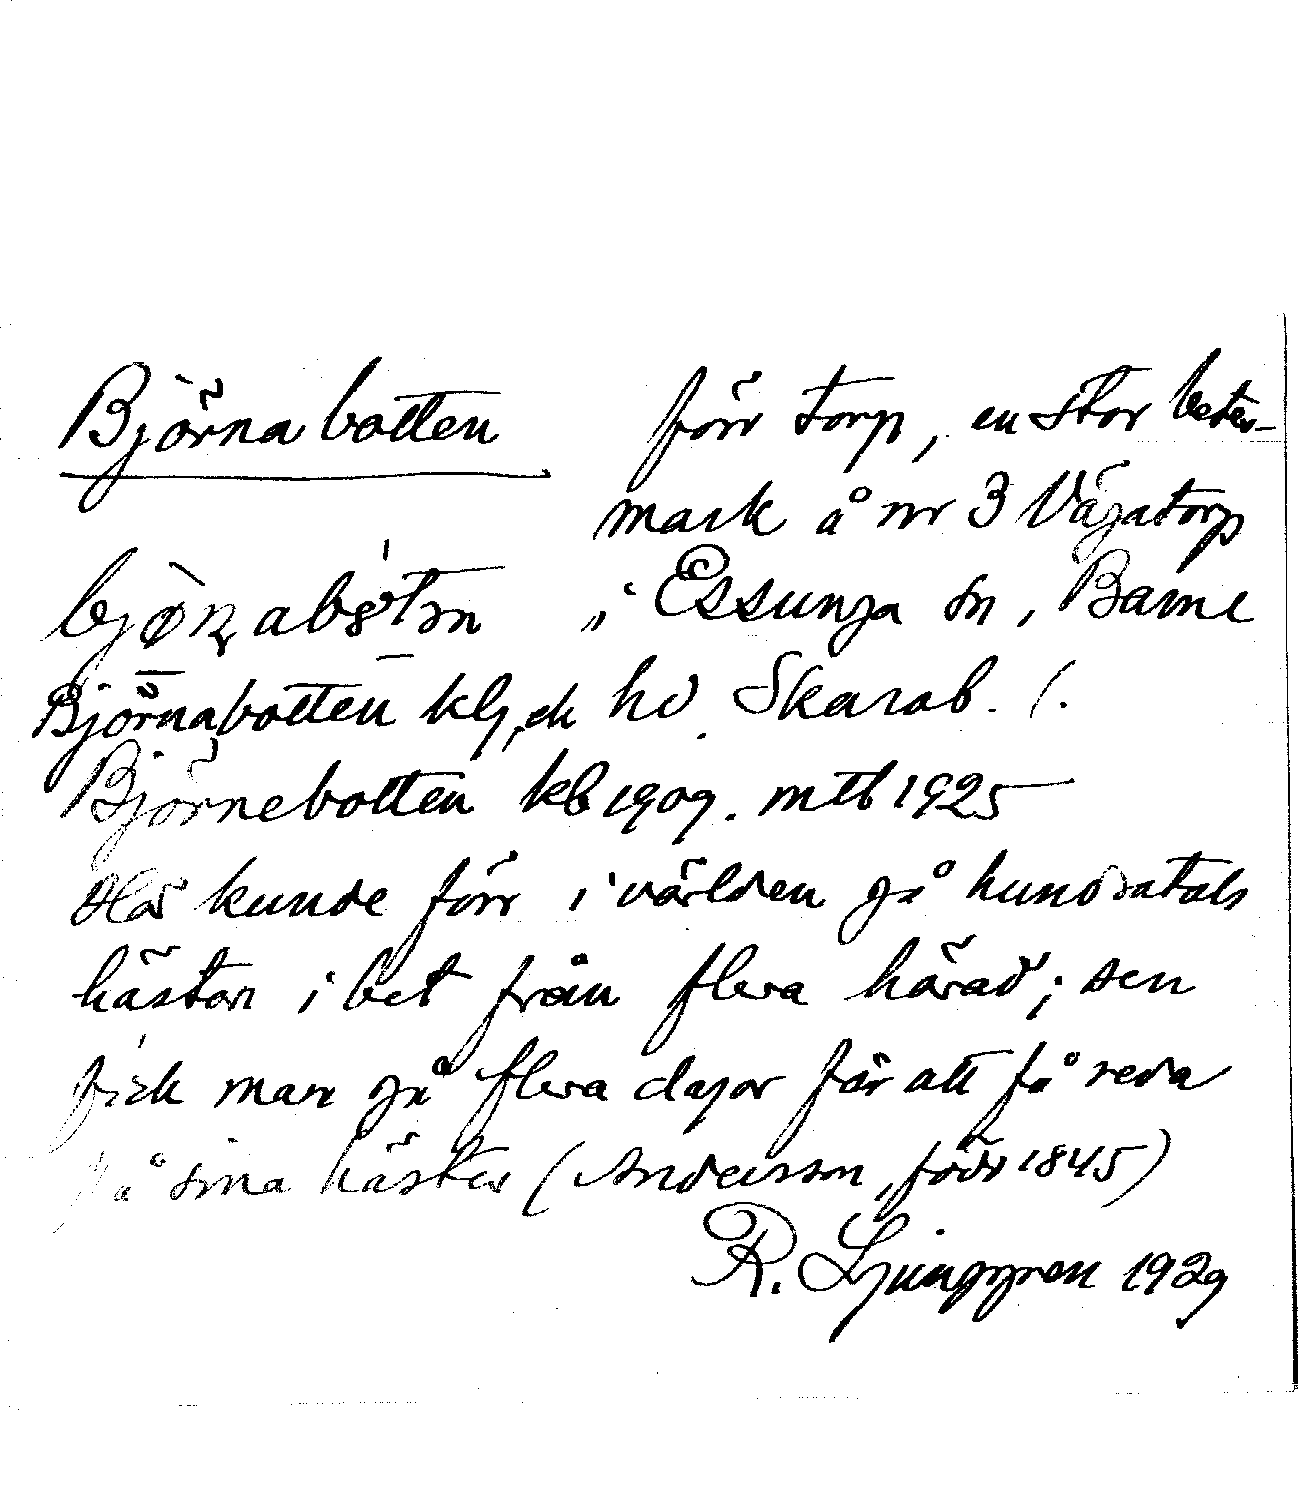 Björnabotten förr torp, en stor betes-
mark å nr 3 Vägatorp
i Essunga sn, Barne
Björnabotten klg, ek hd. Skarab. l.
Björnebotten kb 1909. mtl 1925
Här kunde förr i världen gå hundratals
hästar i bet från flera härad; sen
fick man gå flera dagar för att få reda
på sina hästar (Andersson, född 1845)
R. Ljunggren 1929